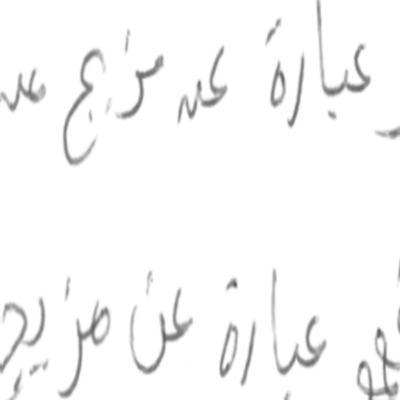 عبارة عن مزيج
عبارة عن مزيج